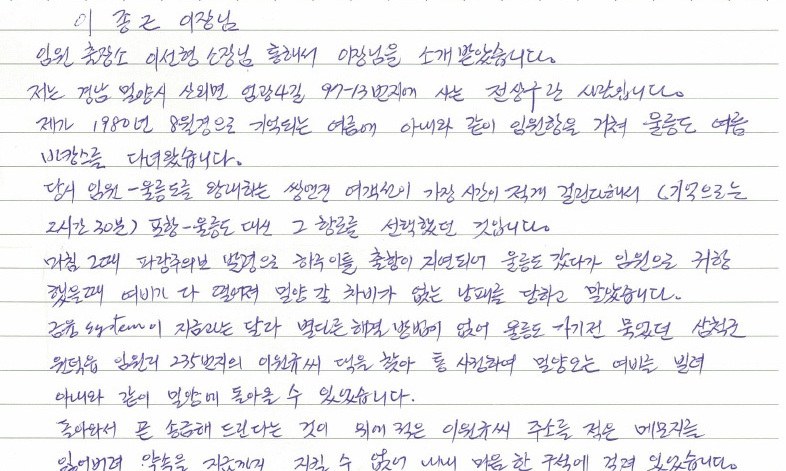 이 종근 이장님
임원 출장소 이선형 소장님 통해서 이장님을 소개 받았습니다.
저는 경남 밀양시 산외면 엄광4길 97-13번지에 사는 전상구란 사람입니다.
제가 1980년 8월경으로 기억되는 여름에 아내와 같이 임원항을 거쳐 울릉도 여름
바캉스를 다녀왔습니다.
당시 임원-울릉도를 왕래하는 쌍연견 여객선이 가장 시간이 적게 걸린다해서 (기억으로는
2시간 30분) 포항-울릉도 대신 그 항로를 선택했던 것입니다.
마침 그때 파랑주의보 발령으로 하루 이틀 출항이 지연되어 울릉도 갔다가 임원으로 귀항
했을때 여비가 다 떨어져 밀양 갈 차비가 없는 낭패를 당하고 말았습니다.
금융 system이 지금과는 달라 별다른 해결 방법이 없어 울릉도 가기전 묵었던 삼척군
원덕읍 임원리 235번지의 이원규씨 댁을 찾아 통 사정하여 밀양오는 여비를 빌려
아내와 같이 밀양에 돌아올 수 있었습니다.
돌아와서 곧 송금해 드린다는 것이 위에 적은 이원규씨 주소를 적은 메모지를
잃어버려 약속을 지금까지 지킬 수 없어 내내 마음 한 구석에 걸려 있었습니다.